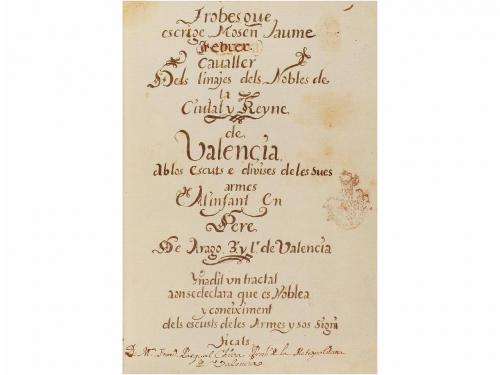 Trobes que
escrige Mosen Jaume
Febrer
Cavaller
Dels linajes dels Nobles de
la
Ciutat y Reyne
de
Valencia
Ab los Escuts e divises de les Sues
armes
A l'infant En
Pere
De Arago 3 y 1 de Valencia
Yñadit vn tractat
aon se declara que es Noblea
y coneiximent
dels escusts de les Armes y sos Signi
ficats
Pasqual Chiva de la Metropolitana
Valencia